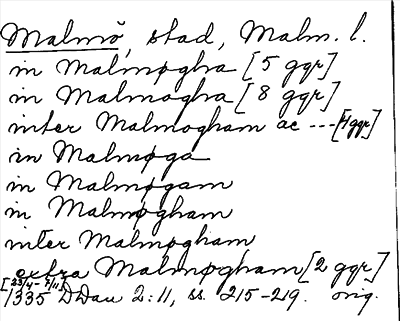 Malmö, stad, Malm. l.
in Malmøgha [5 ggr]
in Malmogha [8 ggr]
inter Malmogham ac --- [4 ggr]
in Malmøga
in Malmøgam
in Malmøgham
inter Malmøgham
extra Malmøgham [2 ggr]
[23/4- 7/11]
1335 DDan 2:11, ss. 215-219. orig.